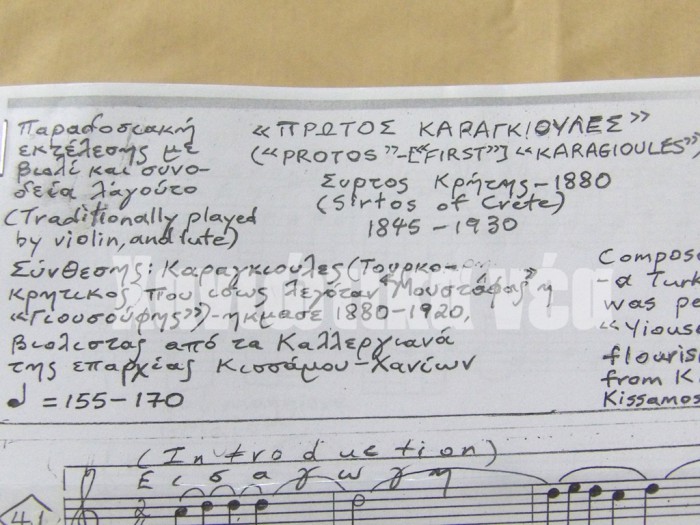 Παραδοσιακή
εκτέλεσης με
βιολί και συνο-
δεία λαγούτο
(Traditionally played
by violin, and lute)
«ΠΡΩΤΟΣ ΚΑΡΑΓΚΙΟΥΛΕΣ»
("PROTOS"-["FIRST"] "KARAGIOULES"
Συρτος Κρήτης-1880
(Sirtos of Crete)
1845-1930
Σύνθεσης: Καραγκιουλες (Τουρκο-
κρητικος που ισως λεγόταν "Μουστάφας" η
«Γιουσούφης»)-ηκμασε 1880-1920,
βιολιστας από τα Καλλεργιανά
της επαρχίας Κισσάμου-Χανίων
♩ = 155-170
Compose
-a Turk
was pe
"Yiouse
flouris
from K
Kissamos
(Introduction)
Εισαγωγη
41